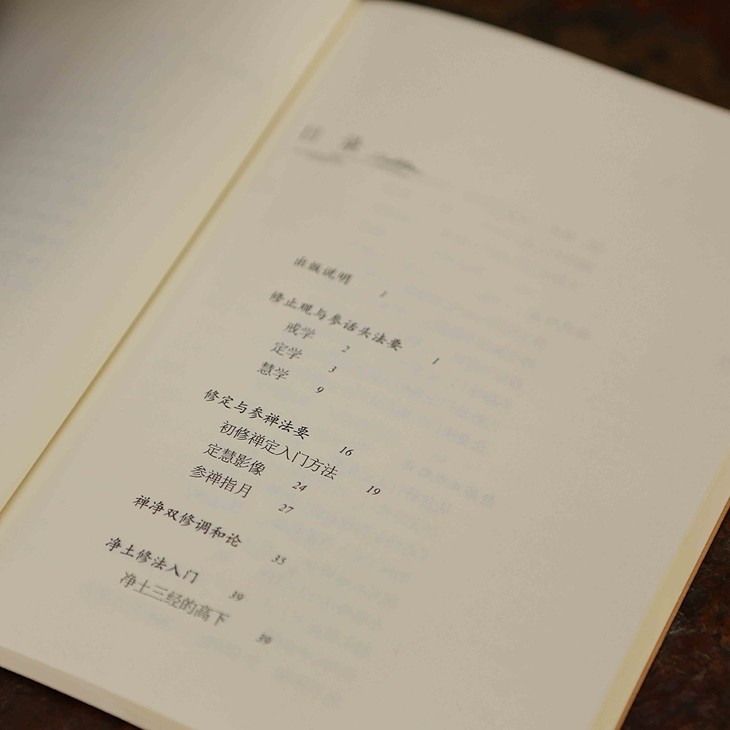 目 录
出版说明 1
修止观与参话头法要 1
戒学 2
定学 3
慧学 9
修定与参禅法要 16
初修禅定入门方法 19
定慧影像 24
参禅指月 27
禅净双修调和论 35
净土修法入门 39
净土三经的高下 39